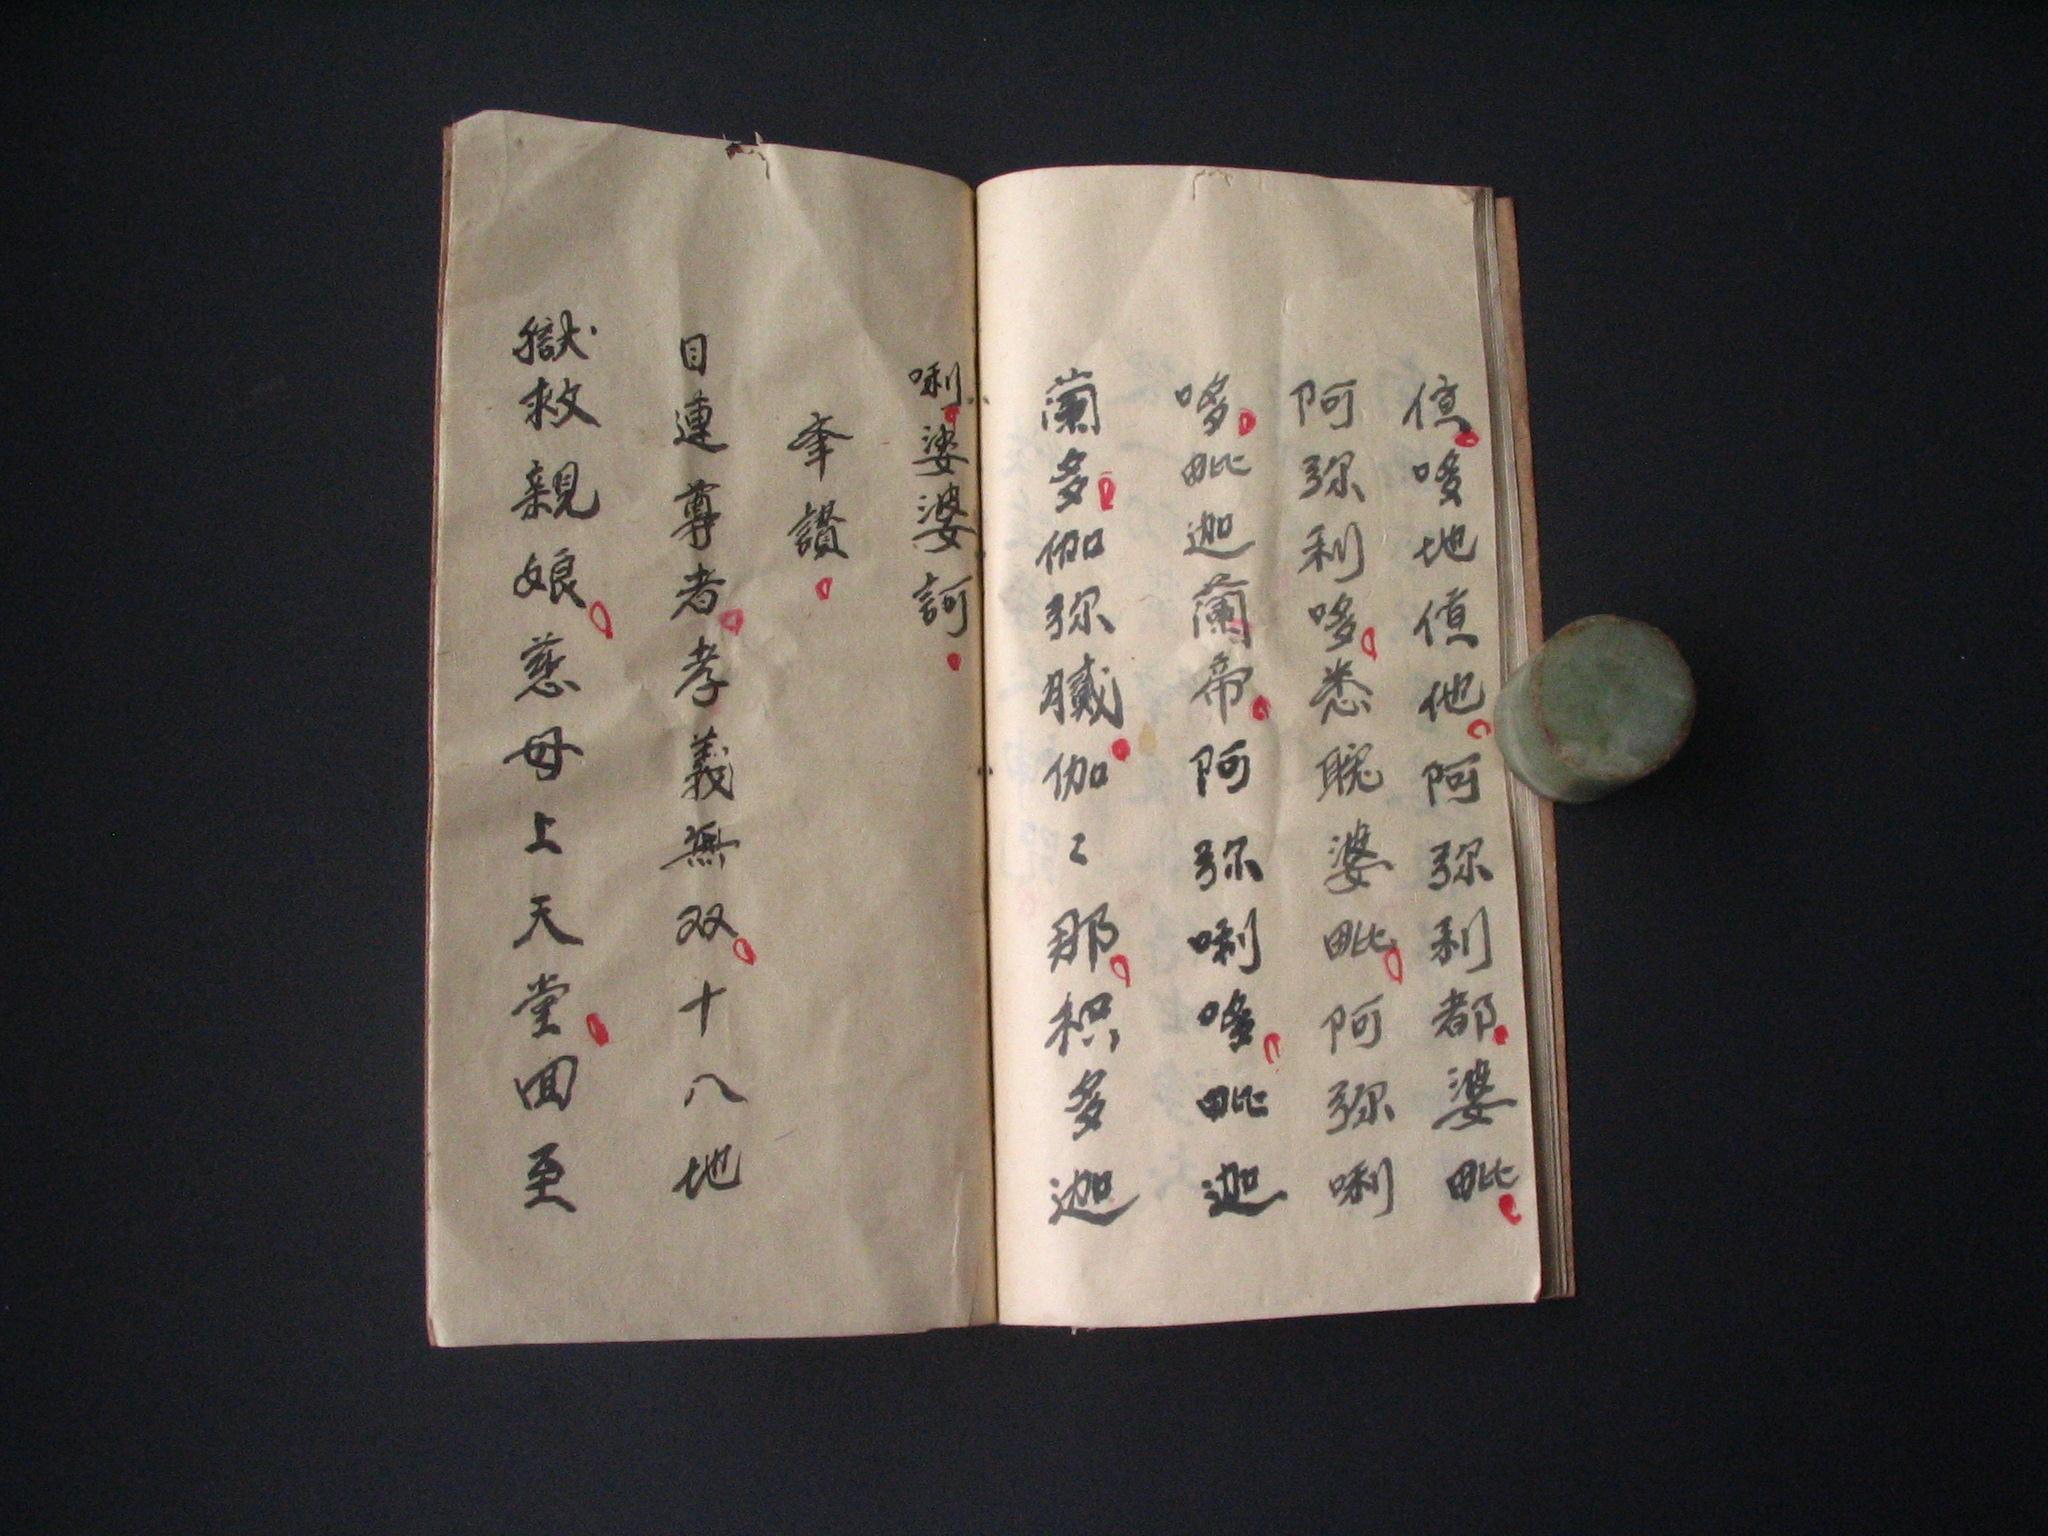 億哆地億他阿弥利都婆毗
阿弥利哆悉耽婆毗阿弥唎
哆毗迦蘭帝阿弥唎哆毗迦
蘭多伽弥膩伽〻那枳多迦
唎婆婆訶
奉讚
目連尊者孝義無双十八地
獄救親娘慈母上天堂回至